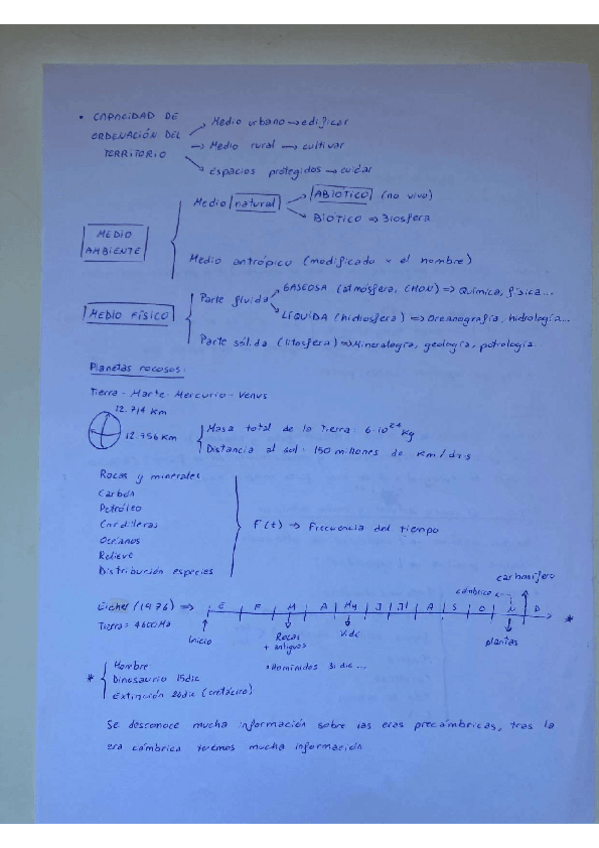 • CAPACIDAD DE ORDENACIÓN DEL TERRITORIO
→ Medio urbano → edificar
→ Medio rural → cultivar
→ Espacios protegidos → cuidar
MEDIO AMBIENTE
Medio natural → ABIÓTICO (no vivo)
→ BIÓTICO ⇒ Biosfera
Medio antrópico (modificado x el hombre)
MEDIO FÍSICO
Parte fluida → GASEOSA (atmósfera, CHON) ⇒ Química, física...
→ LÍQUIDA (hidrosfera) ⇒ Oceanografía, hidrología...
Parte sólida (litosfera) ⇒ Mineralogía, geología, petrología...
Planetas rocosos:
Tierra - Marte - Mercurio - Venus
12.714 Km
12.756 Km
Masa total de la Tierra: 6·10²⁴ kg
Distancia al sol: 150 millones de Km
Rocas y minerales
Carbón
Petróleo
Cordilleras
Océanos
Relieve
Distribución especies
F(t) → Frecuencia del tiempo
carbonífero
cámbrico
Eicher (1976) ⇒ E F M A My J Jl A S O N D *
Tierra = 4600 Ma
Inicio
Rocas + antiguas
Vida
plantas
* Hominidos 31 dic...
* Hombre
Dinosaurio 15 dic
Extinción 26 dic (cretácico)
Se desconoce mucha información sobre las eras precámbricas, tras la
era cámbrica tenemos mucha información